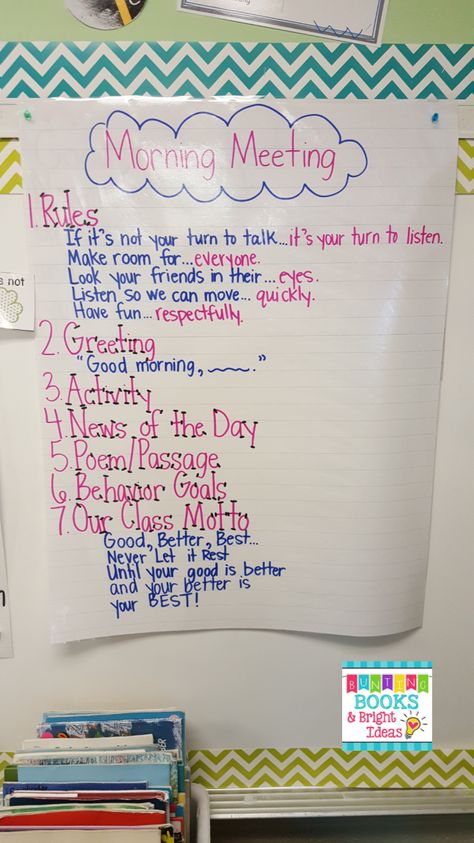 Morning Meeting
1. Rules
If it's not your turn to talk...it's your turn to listen.
Make room for...everyone.
Look your friends in their...eyes.
Listen, so we can move... quickly.
Have fun...respectfully.
2. Greeting
"Good morning, ____."
3. Activity
4. News of the Day
5. Poem/Passage
6. Behavior Goals
7. Our Class Motto
Good, Better, Best...
Never Let it Rest
Until your good is better
and your better is
your BEST!
s not
BUNTING
BOOKS
& Bright
IDEAS